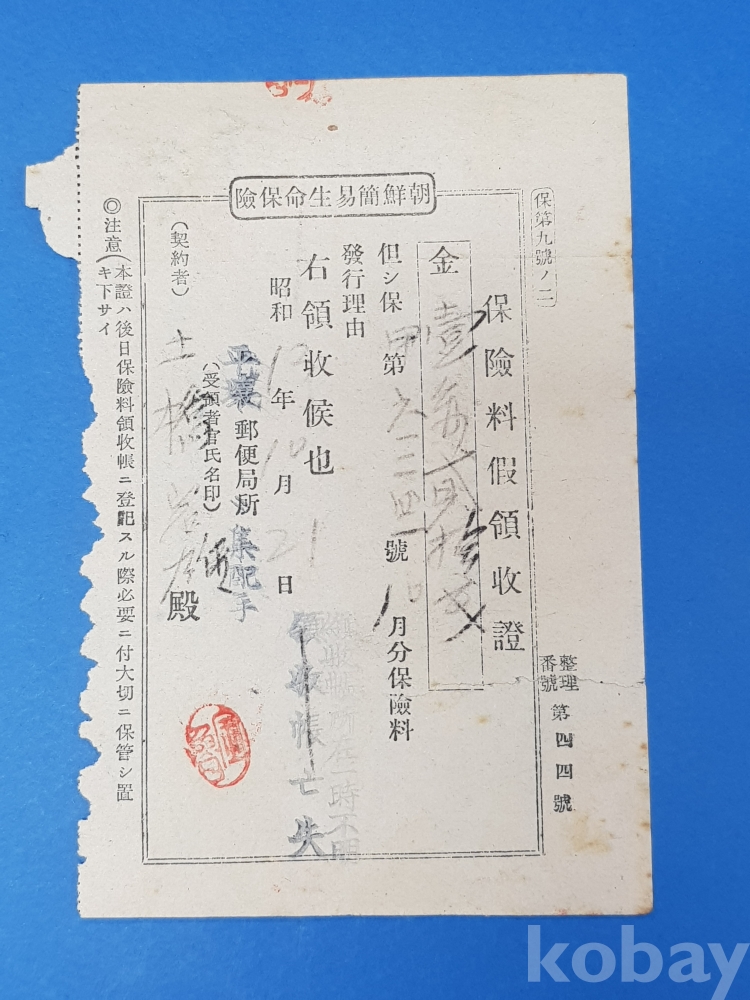 朝鮮簡易生命保險
保第九號ノ二
保險料假領收證
整理番號 第四四號
金 壹
但シ保 第 六三四 號 10 月分保險料
發行理由
領收帳所在一時不明
領收帳亡失
右領收候也
昭和 12 年 10 月 21 日
平壤 郵便局所 集配手
(受領者官氏名印)
(契約者) 土橋 殿
◎注意(本證ハ後日保險料領收帳ニ登記スル際必要ニ付大切ニ保管シ置
キ下サイ
kobay